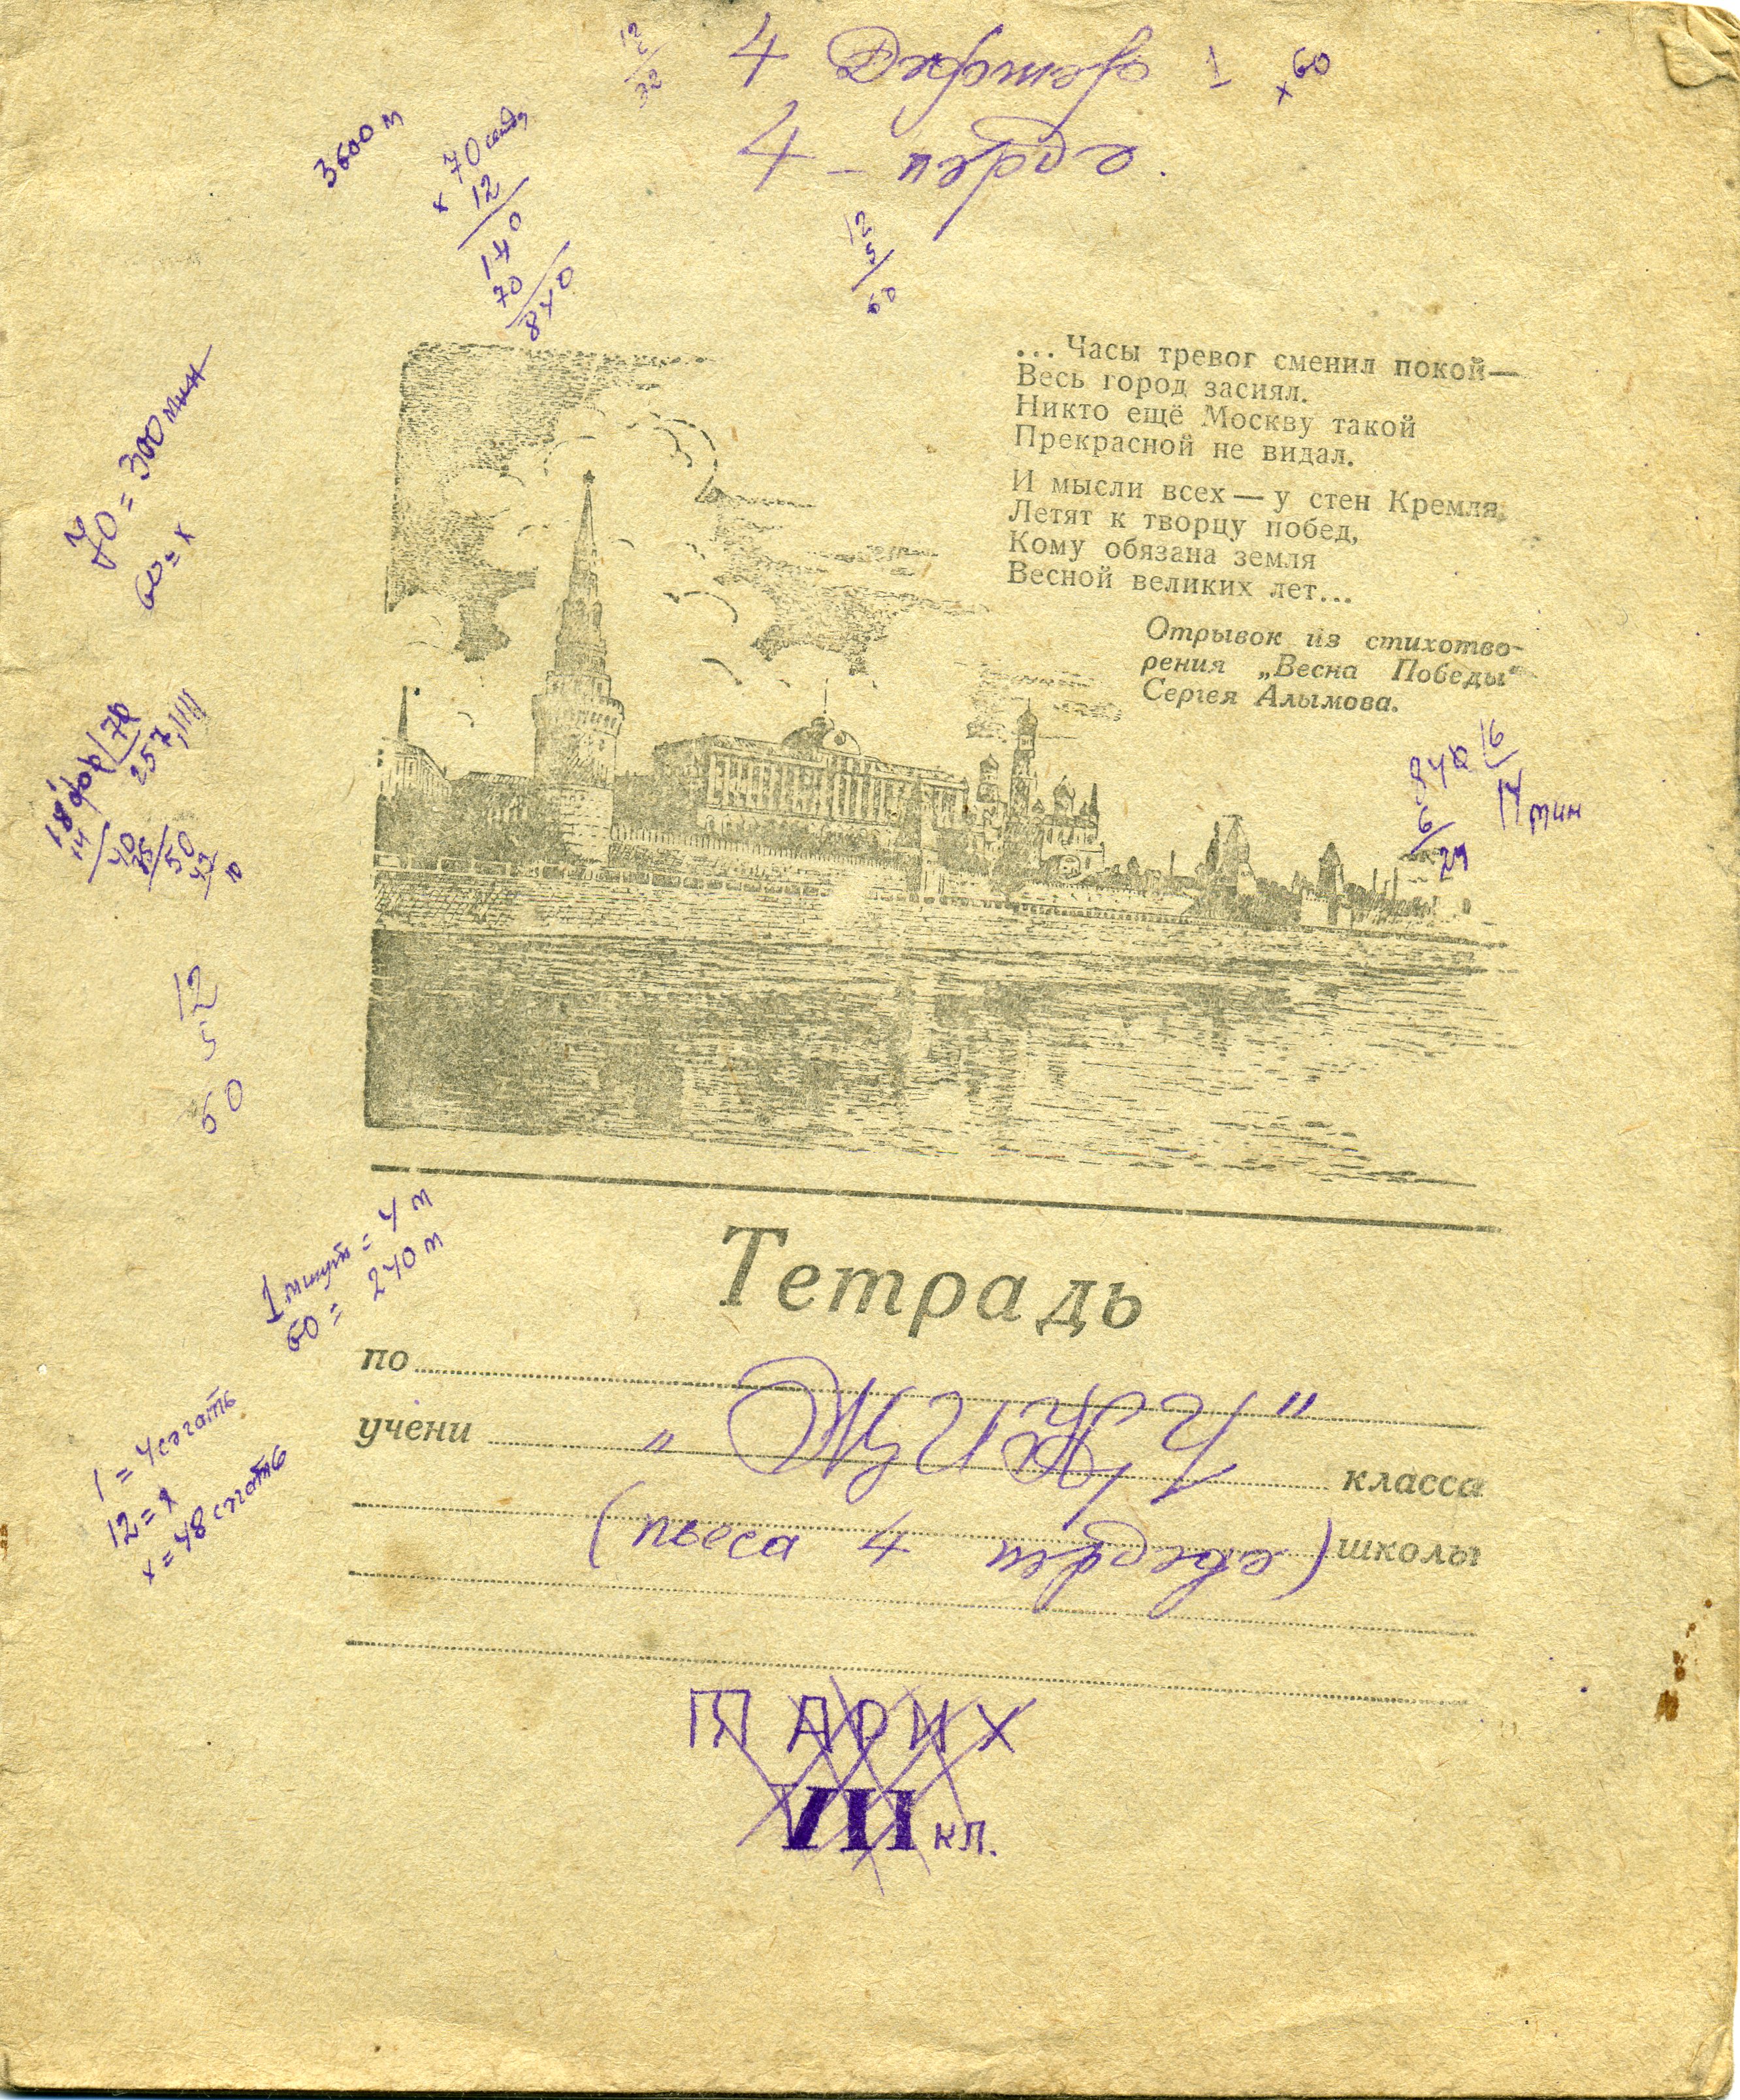 4 Дәфтәр 1
4 - пәрдә.
x 60
12
3600 м
x 70
12
140
70
840
12
5
60
... Часы тревог сменил покой—
Весь город засиял.
Никто ещё Москву такой
Прекрасной не видал.
И мысли всех — у стен Кремля,
Летят к творцу побед,
Кому обязана земля
Весной великих лет...
Отрывок из стихотво-
рения „Весна Победы“
Сергея Алымова.
70 = 300 мин
60 = x
840
6
24
мин
12
5
60
1 минут = 4 м
60 = 240 м
1 = 4 сәгать
12 = x
x = 48 сәгать
Тетрадь
по
учени класса
(пьеса 4 пәрдәдә) школы
ТАРИХ
VII кл.